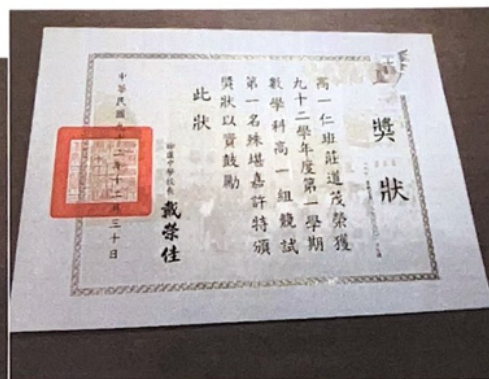 獎狀
高一仁班莊道茂榮獲
九十二學年度第一學期
數學科高一組競試
第一名殊堪嘉許特頒
獎狀以資鼓勵
此狀
中學校長 戴榮佳
中華民國九十二年十二月三十日